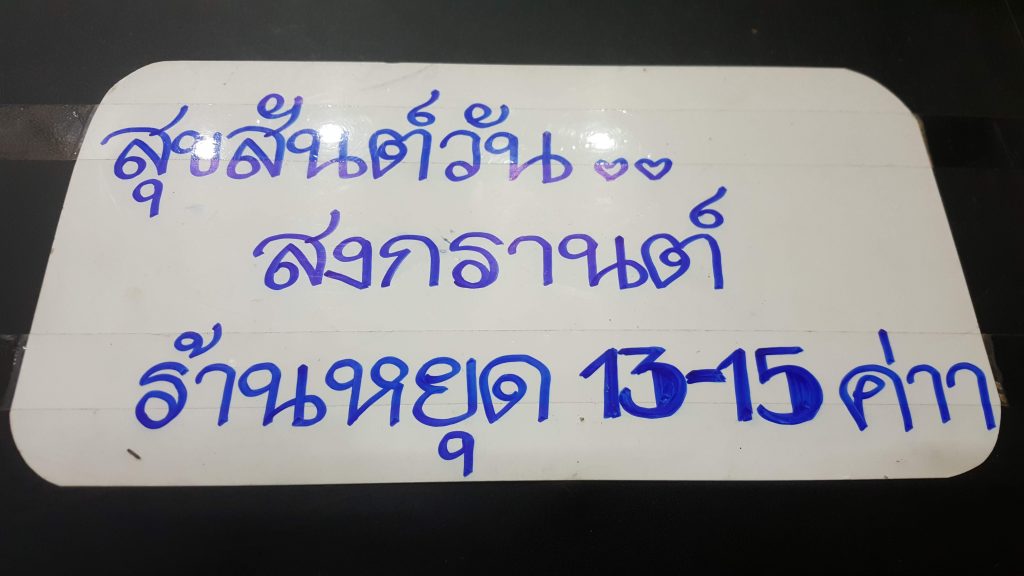 สุขสันต์วัน ♡♡
สงกรานต์
ร้านหยุด 13-15 ค่าา